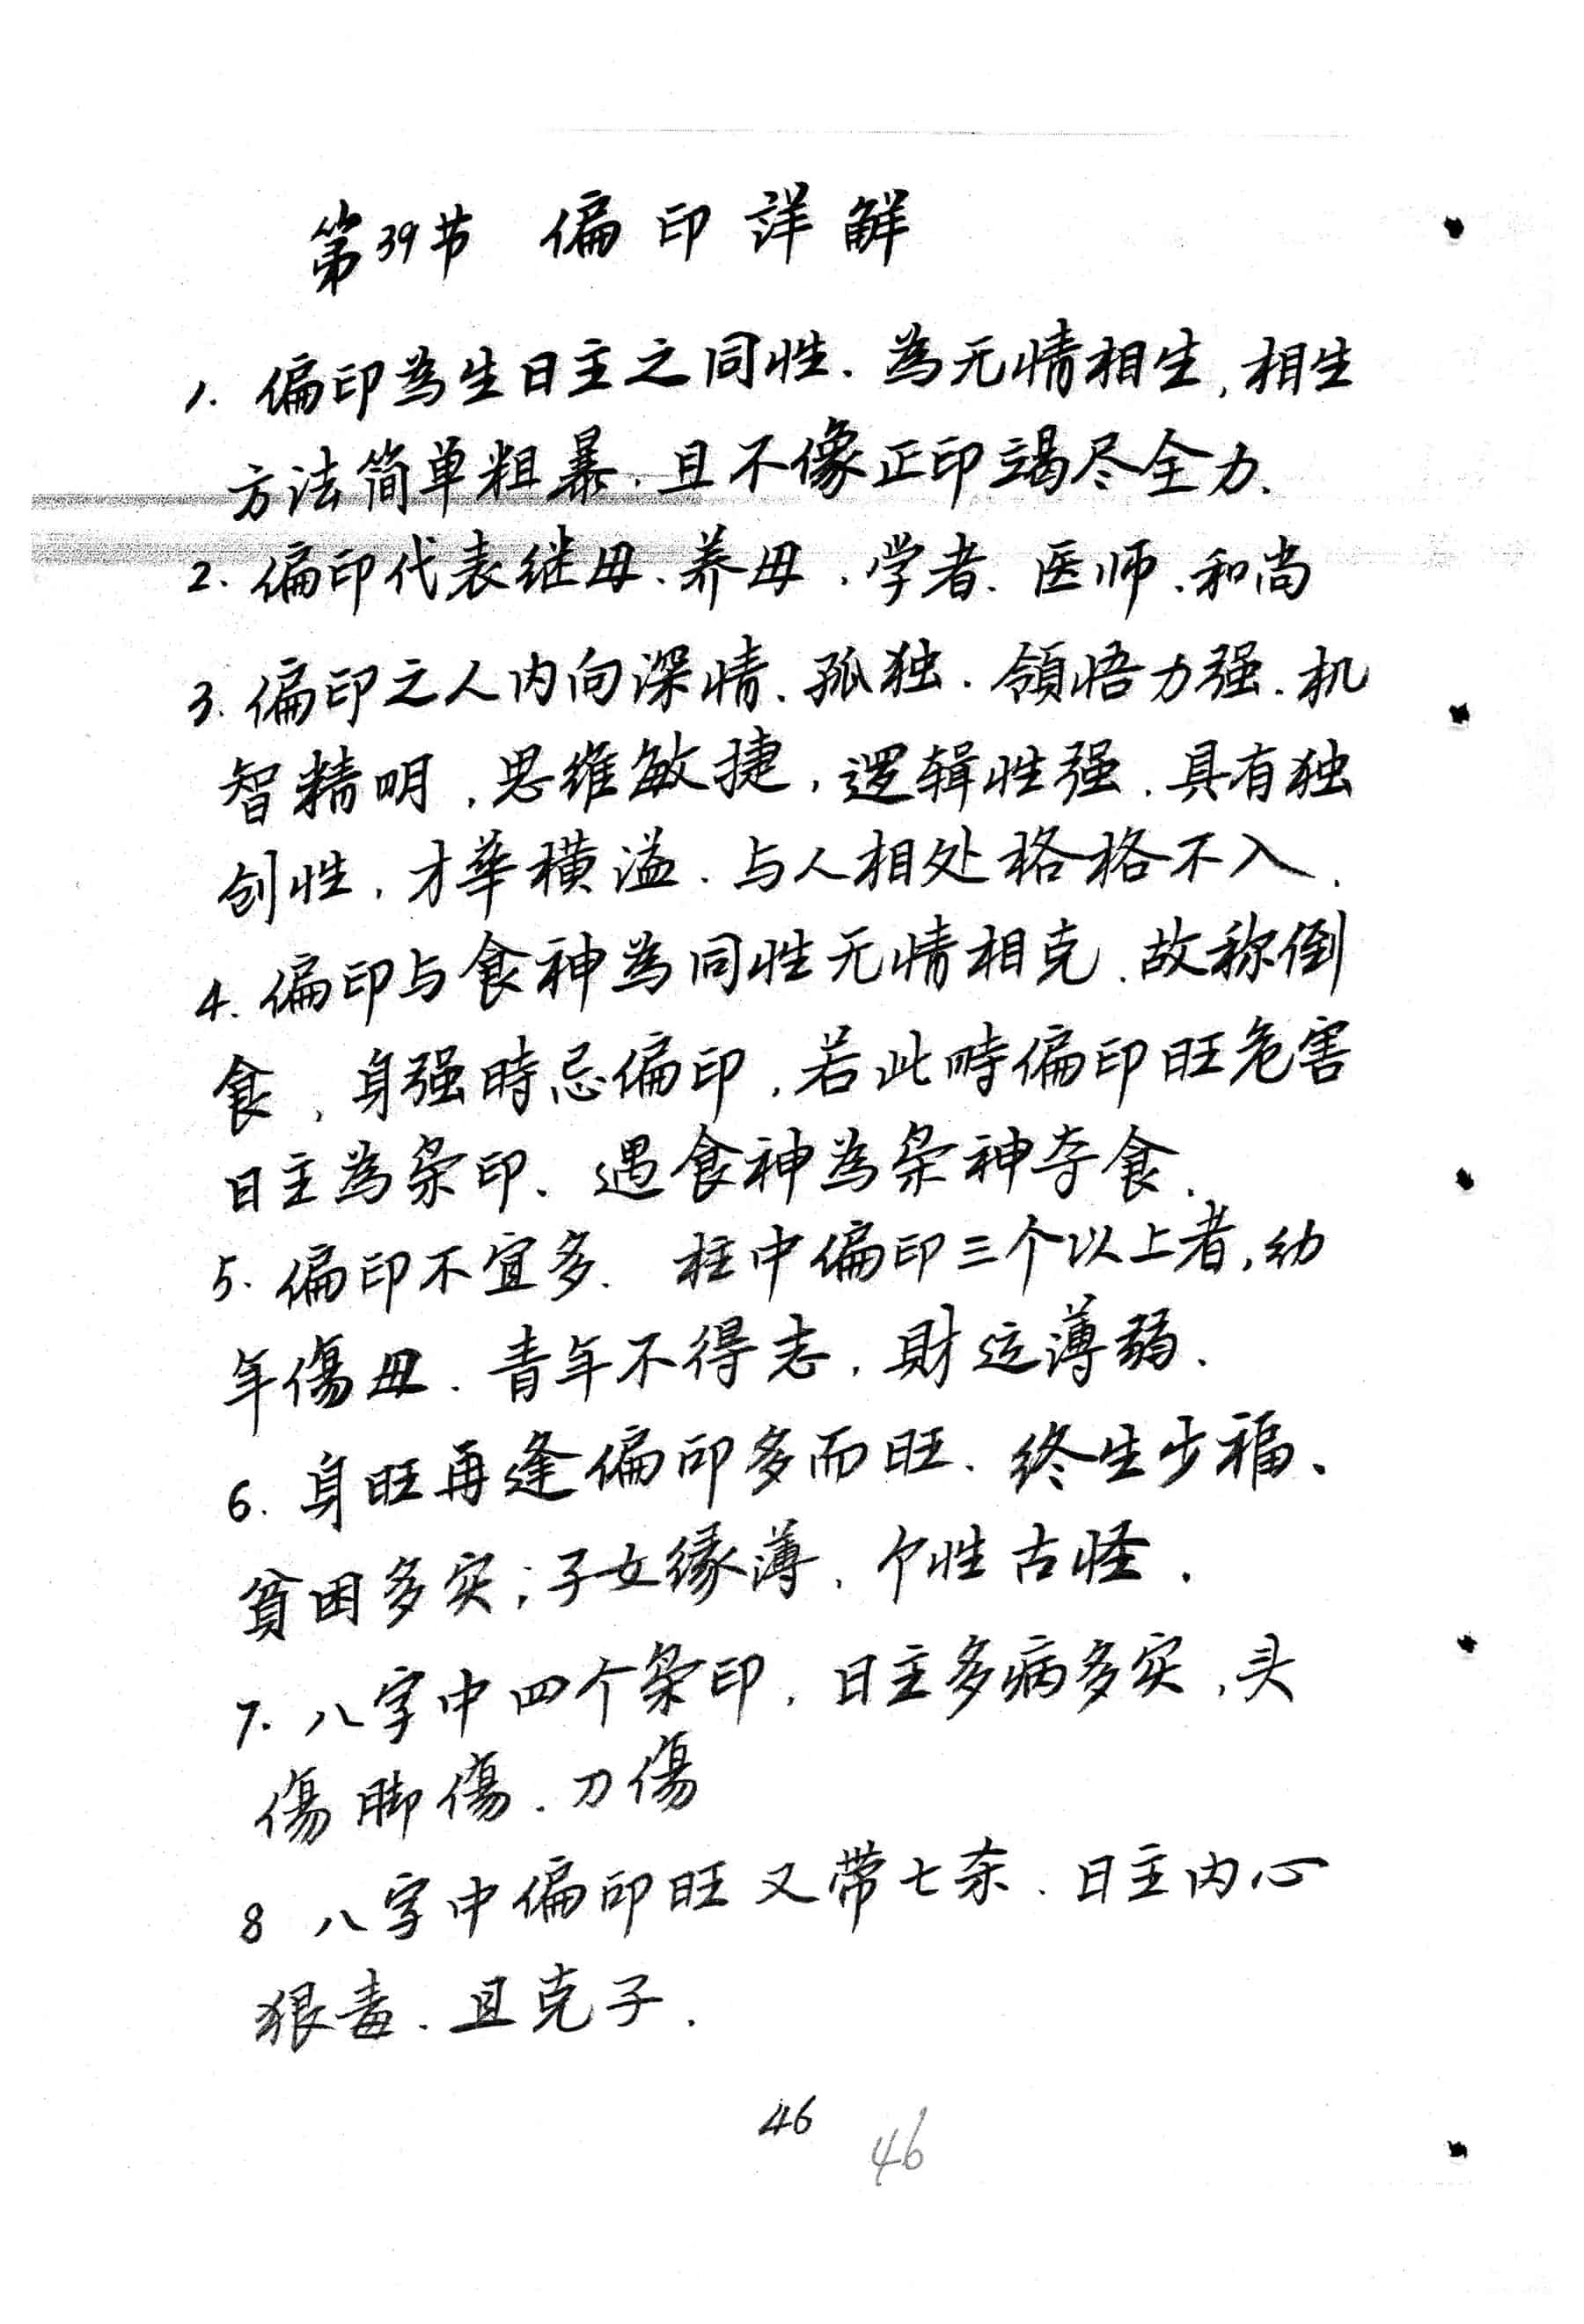 第39节 偏印詳解
1. 偏印為生日主之同性. 為无情相生, 相生
方法简单粗暴. 且不像正印竭尽全力、
2. 偏印代表继母、养母、学者. 医师、和尚
3. 偏印之人内向深情、孤独. 領悟力强. 机
智精明, 思维敏捷, 逻辑性强、具有独
创性, 才華横溢. 与人相处格格不入、
4. 偏印与食神為同性无情相克、故称倒
食, 身强時忌偏印, 若此時偏印旺危害
日主為枭印、遇食神為枭神夺食、
5. 偏印不宜多. 柱中偏印三个以上者, 幼
年傷母. 青年不得志, 財运薄弱.
6. 身旺再逢偏印多而旺、终生少福、
貧困多灾; 子女缘薄、个性古怪.
7. 八字中四个枭印, 日主多病多灾, 头
傷脚傷. 刀傷
8 八字中偏印旺又带七杀. 日主内心
狠毒. 且克子.
46
46